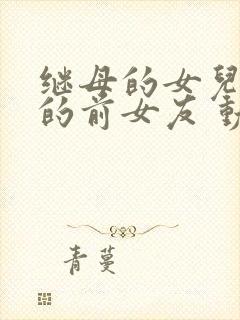 继母的女兒
的前女友 動
青蔓